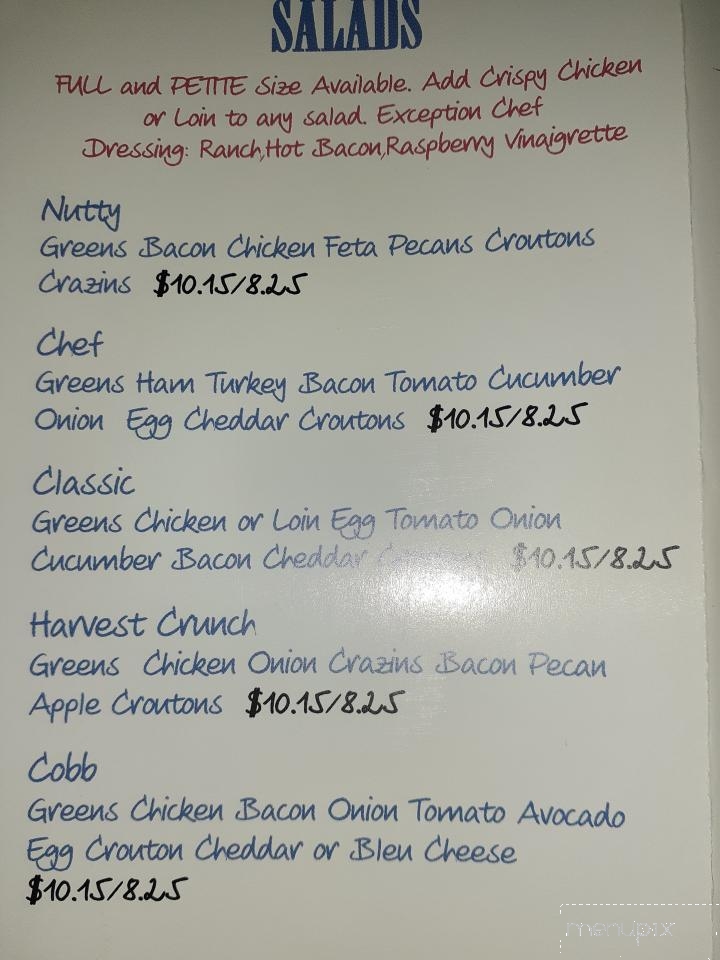 SALADS
FULL and PETITE Size Available. Add Crispy Chicken
or Loin to any salad. Exception Chef
Dressing: Ranch,Hot Bacon,Raspberry Vinaigrette
Nutty
Greens Bacon Chicken Feta Pecans Croutons
Crazins $10.15/8.25
Chef
Greens Ham Turkey Bacon Tomato Cucumber
Onion Egg Cheddar Croutons $10.15/8.25
Classic
Greens Chicken or Loin Egg Tomato Onion
Cucumber Bacon Cheddar Croutons $10.15/8.25
Harvest Crunch
Greens Chicken Onion Crazins Bacon Pecan
Apple Croutons $10.15/8.25
Cobb
Greens Chicken Bacon Onion Tomato Avocado
Egg Crouton Cheddar or Bleu Cheese
$10.15/8.25
menupix